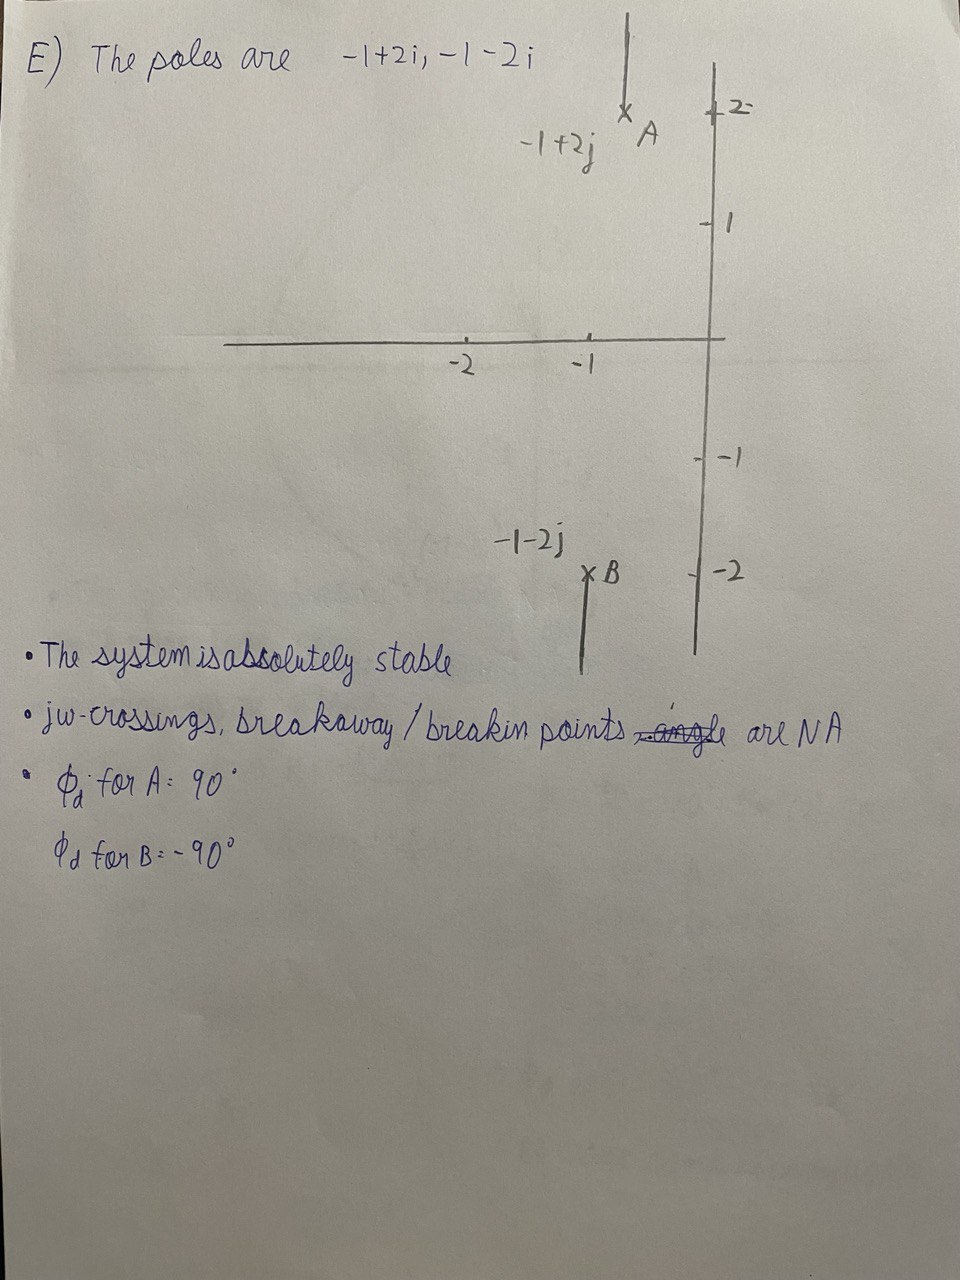 E) The poles are -1+2i, -1-2i
2
-1+2j A
1
-2 -1
-1
-1-2j
B -2
• The system is absolutely stable
• jw-crossings, breakaway / breakin points, angle are NA
• ϕd for A = 90°
ϕd for B = -90°